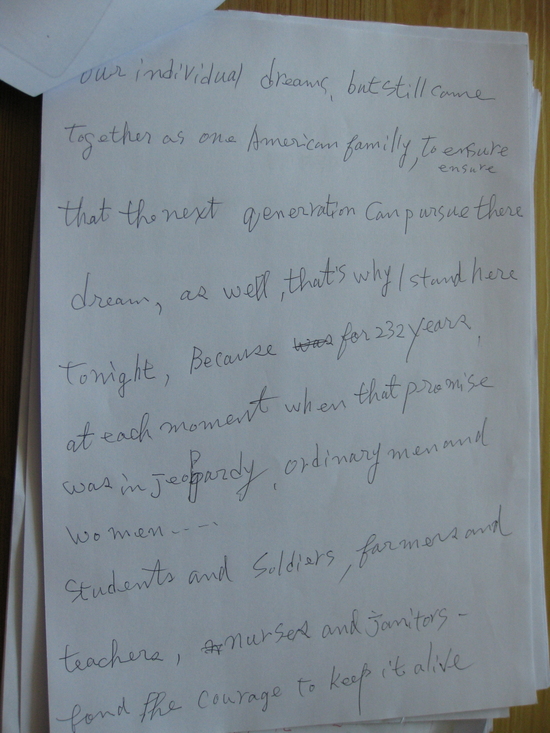 our individual dreams, but still come
together as one American familly, to ensure
ensure
that the next generration Can pursue there
dream, as well, that's why I stand here
Tonight, Because was for 232 years,
at each moment when that promise
was in jeopardy, ordinary men and
women.....
Students and Soldiers, farmers and
teachers, nurses and janitors -
fond the courage to keep it alive